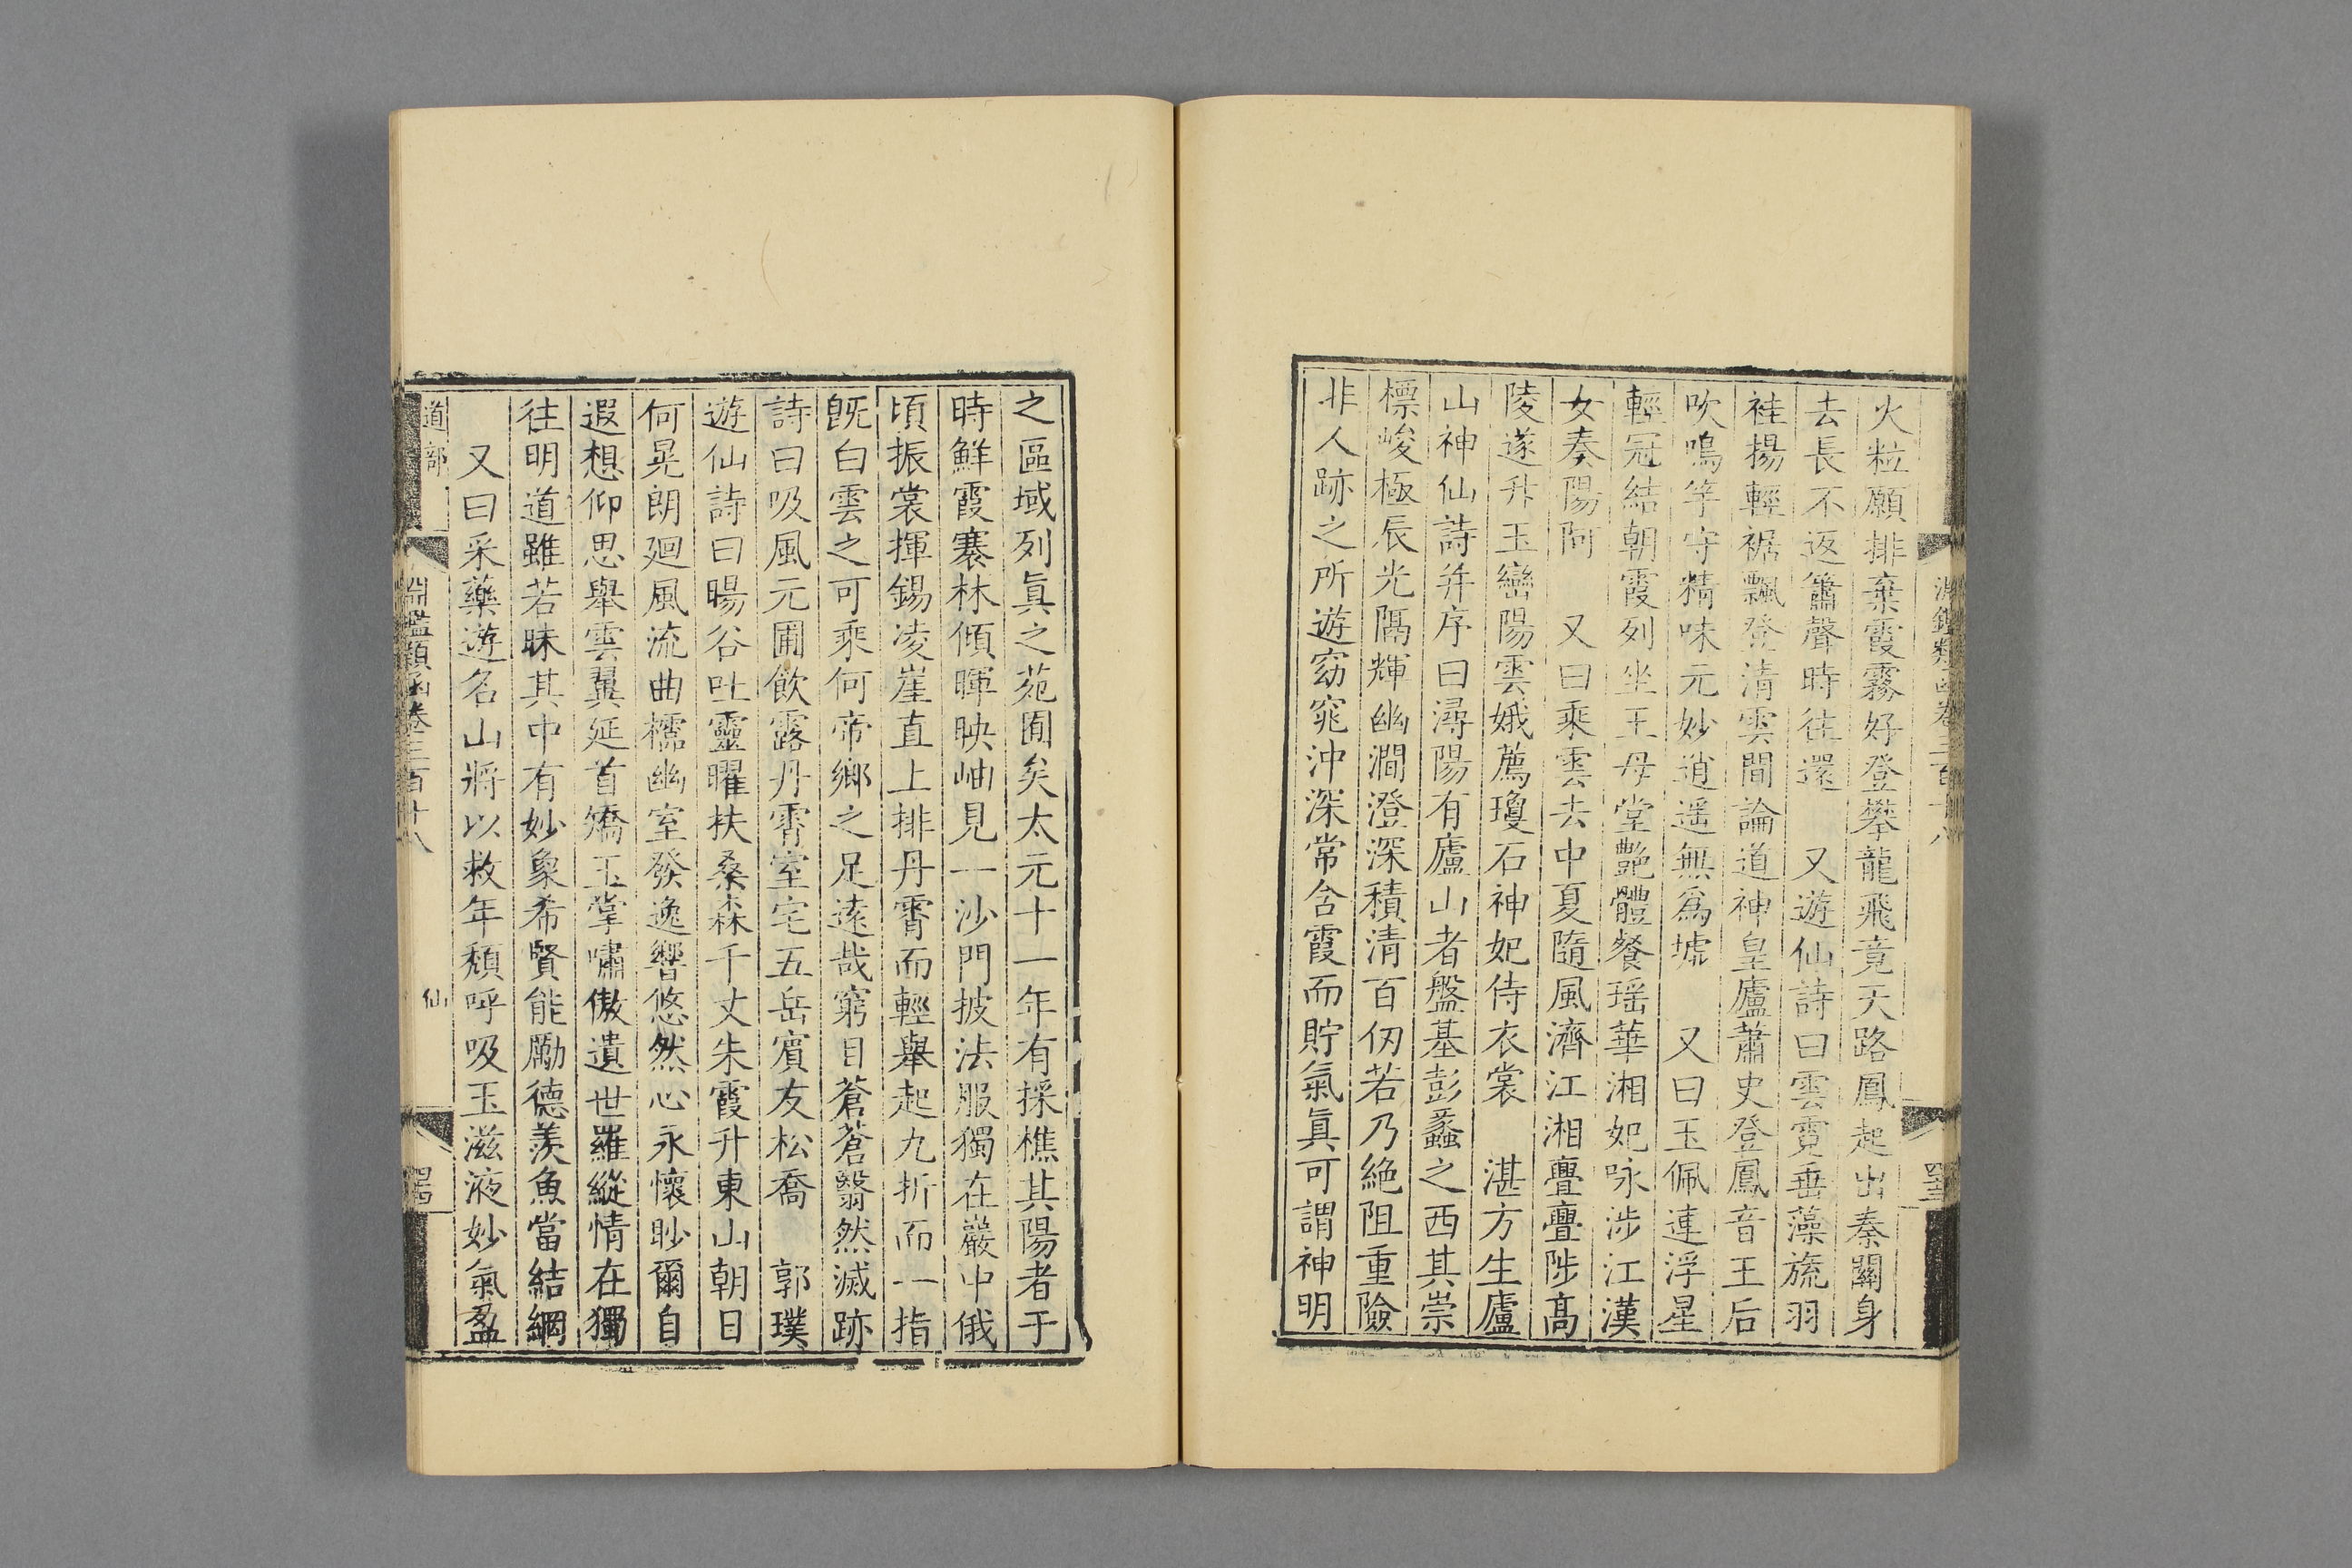 火粒願排棄霞霧好登攀龍飛竟天路鳳起出秦關身
去長不返簫聲時往還　又遊仙詩曰雲霓垂藻旒羽
袿揚輕裾飄登清雲間論道神皇廬蕭史登鳳音王后
吹鳴竽守精味元妙逍遥無爲墟　又曰玉佩連浮星
輕冠結朝霞列坐王母堂艷體餐瑶華湘妃咏涉江漢
女奏陽阿　又曰乘雲去中夏隨風濟江湘亹亹陟髙
陵遂升玉巒陽雲娥薦瓊石神妃侍衣裳　湛方生廬
山神仙詩并序曰潯陽有廬山者盤基彭蠡之西其崇
標峻極辰光隔輝幽澗澄深積清百仭若乃絶阻重險
非人跡之所遊窈窕沖深常含霞而貯氣眞可謂神明
之區域列眞之苑囿矣太元十一年有採樵其陽者于
時鮮霞褰林傾暉映岫見一沙門披法服獨在巖中俄
頃振裳揮錫凌崖直上排丹霄而輕舉起九折而一指
旣白雲之可乘何帝鄉之足逺哉窮目蒼蒼翳然滅跡
詩曰吸風元圃飲露丹霄室宅五岳賓友松喬　郭璞
遊仙詩曰暘谷吐靈曜扶桑森千丈朱霞升東山朝日
何晃朗廻風流曲櫺幽室發逸響悠然心永懷眇爾自
遐想仰思舉雲翼延首矯玉掌嘯傲遺世羅縱情在獨
往明道雖若昧其中有妙象希賢能勵德羡魚當結網
又曰采藥遊名山將以救年頹呼吸玉滋液妙氣盈
道部
淵鑑類函卷三百十八
仙